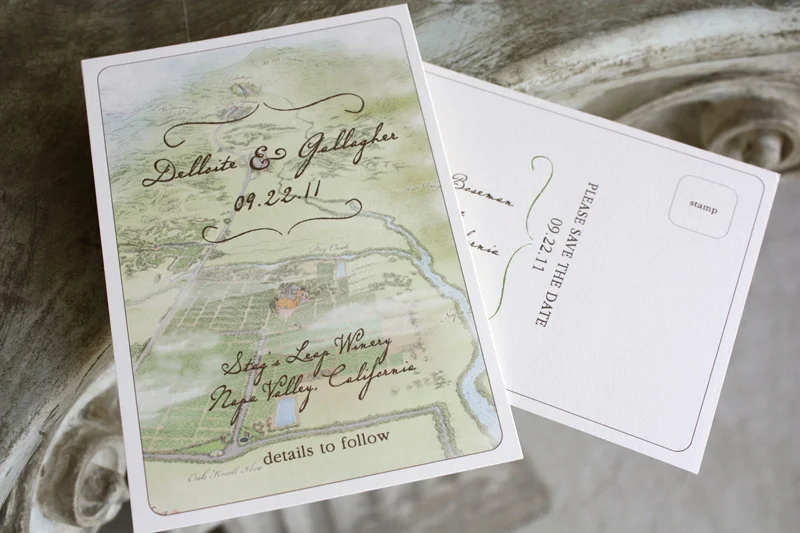 Delloite & Gallagher
09.22.11
Stag's Leap Winery
Napa Valley, California
details to follow
Oak Knoll Ave
Boseman
PLEASE SAVE THE DATE
09.22.11
stamp